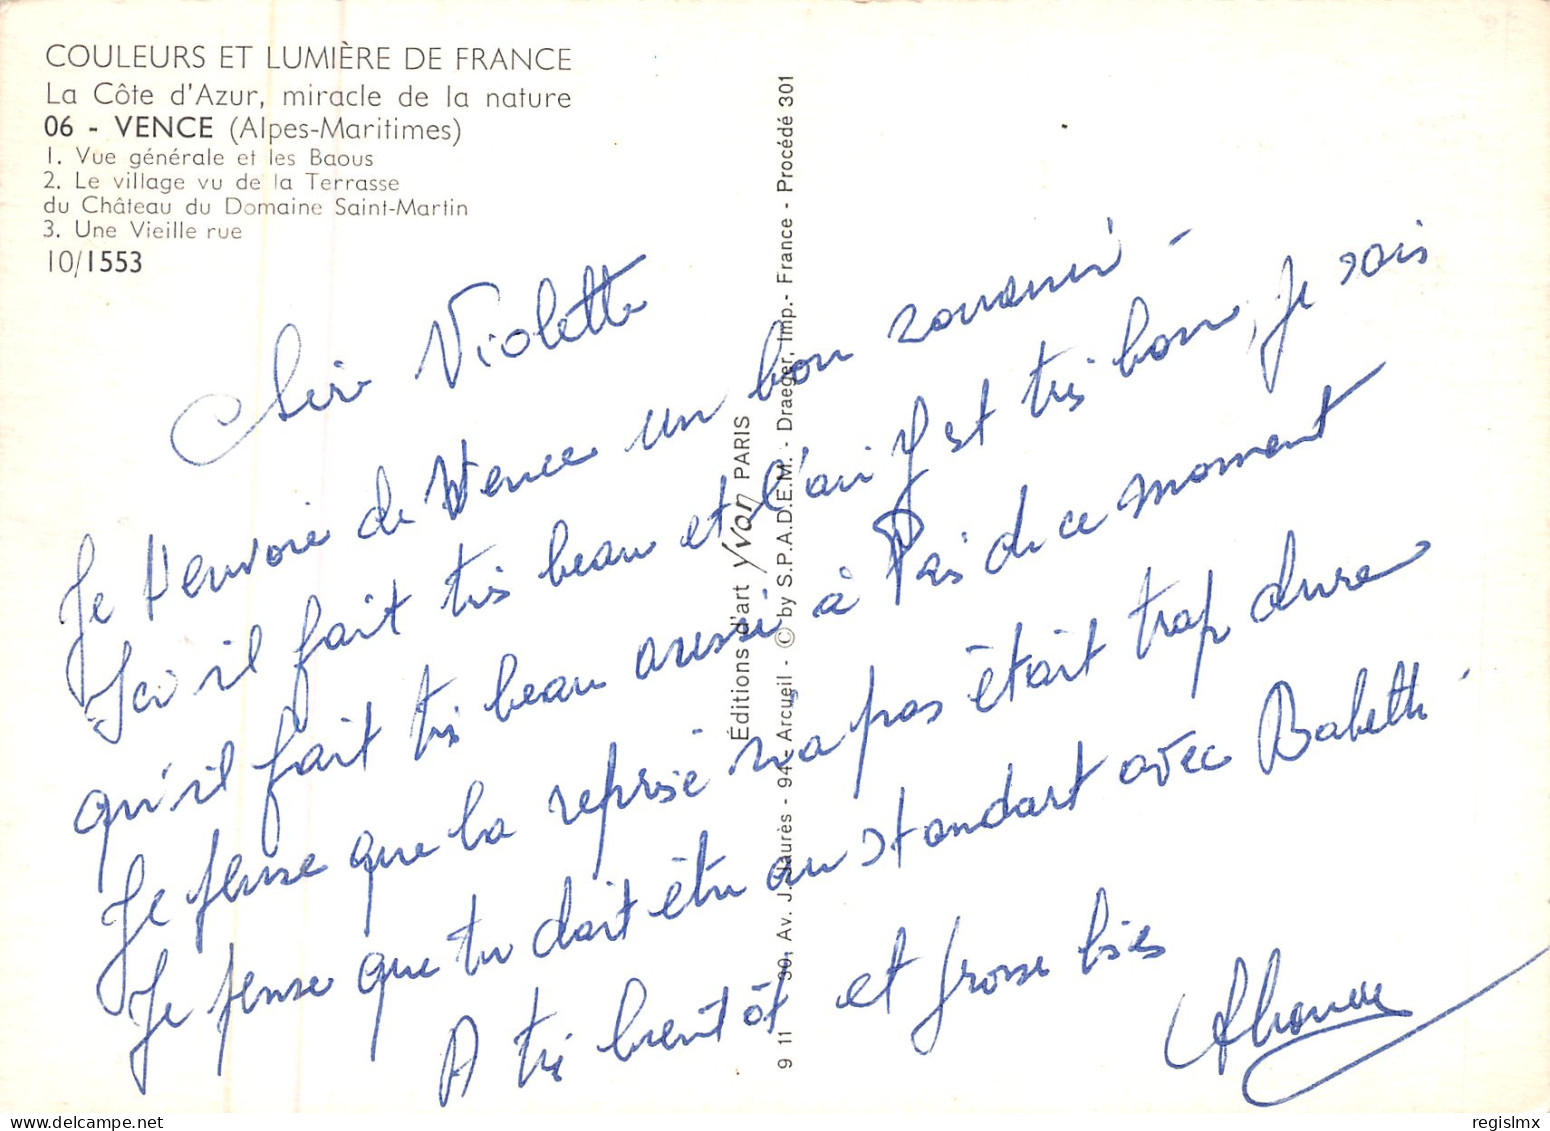 COULEURS ET LUMIÈRE DE FRANCE
La Côte d'Azur, miracle de la nature
06 - VENCE (Alpes-Maritimes)
1. Vue générale et les Baous
2. Le village vu de la Terrasse
du Château du Domaine Saint-Martin
3. Une Vieille rue
10/1553
Chère Violette
Je t'envoie de Vence un bon souvenir -
Ici il fait très beau et l'air y est très bon, je sais
qu'il fait très beau aussi à Paris de ce moment
Je pense que la reprise n'a pas était trop dure
Je pense que tu doit être au standart avec Babette.
A très bientôt et grosse bises
Éditions d'art Yvon PARIS
9 11 - 30, Av. J. Jaurès - 94 - Arcueil - © by S.P.A.D.E.M. - Draeger, Imp. - France - Procédé 301
regislmx